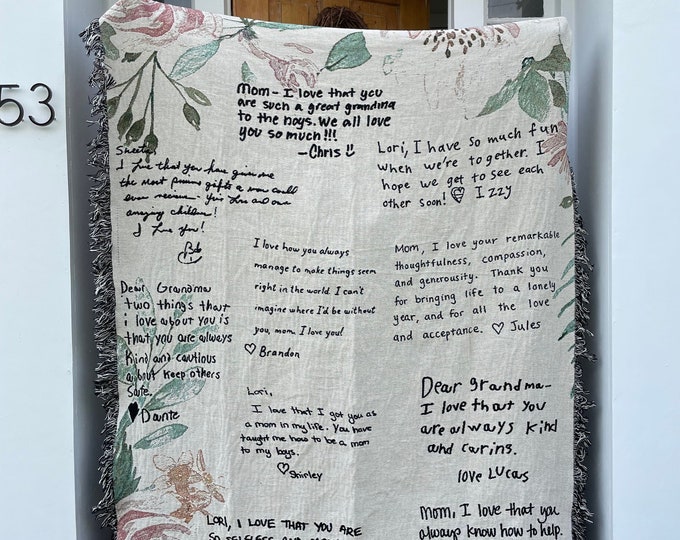 53
Mom - I love that you
are such a great grandma
to the boys. We all love
you so much!!!
- Chris
Lori, I have so much fun
when we're together. I
hope we get to see each
other soon! Izzy
Sweetie
I love that you have given me
the most precious gifts a man could
ever receive - your love and our
amazing children!
I love you!
Bob
I love how you always
manage to make things seem
right in the world. I can't
imagine where I'd be without
you, mom. I love you!
Brandon
Mom, I love your remarkable
thoughtfulness, compassion,
and generousity. Thank you
for bringing life to a lonely
year, and for all the love
and acceptance. Jules
Dear Grandma
two things that
i love about you is
that you are always
Kind and cautious
about keep others
safe.
Dante
Lori,
I love that I got you as
a mom in my life. You have
taught me how to be a mom
to my boys.
Shirley
Dear grandma-
I love that you
are always kind
and caring.
love Lucas
LORI, I LOVE THAT YOU ARE
SO SELFLESS AND
Mom, I love that you
always know how to help.